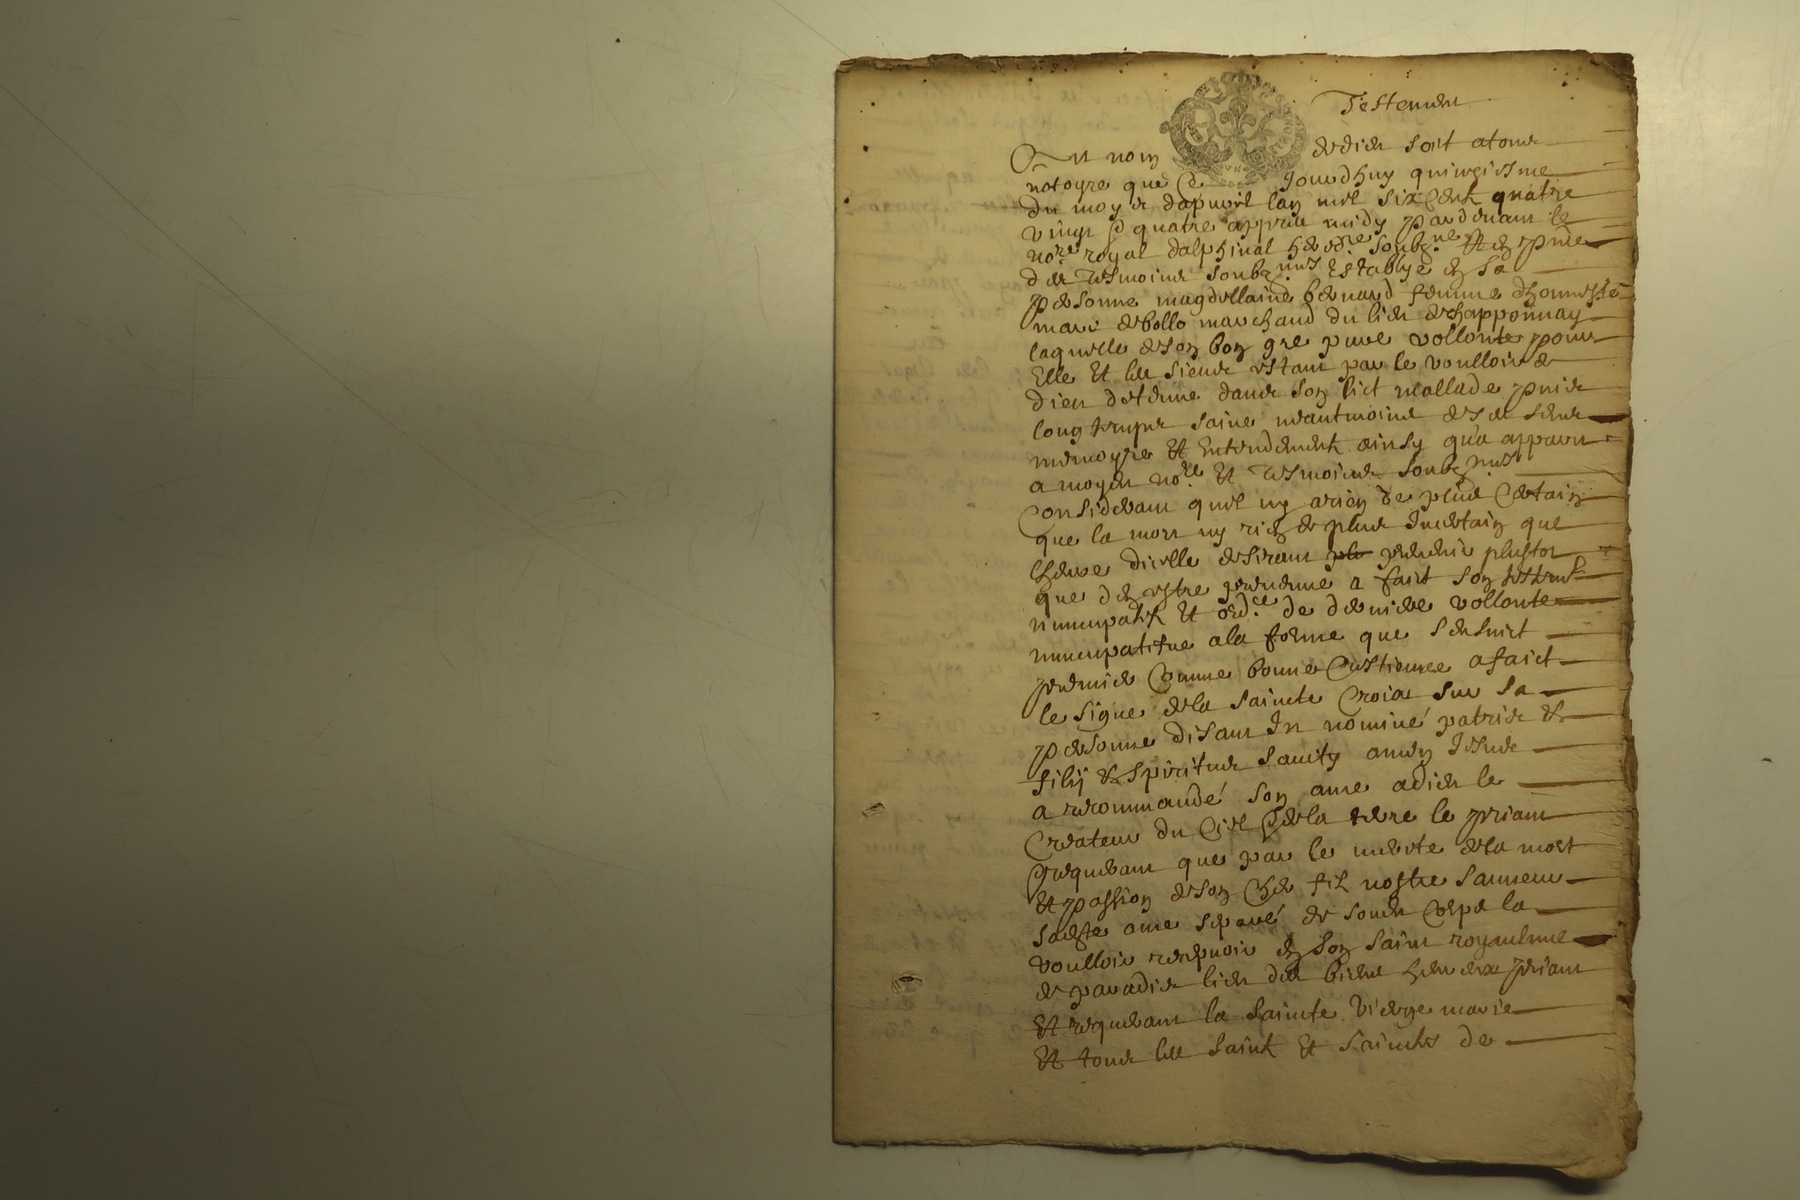 Testement
Au nom de dieu soit a tous
notoyre que ce jourdhuy quinzeisme
du moys dapvril lan mil six cent quatre
vingt & quatre appres midy pardevant le
nore royal dalphinal hered.re soubz.ne et en pnce
des tesmoins soubz.nes establye en sa
personne magdellaine bernard femme dhonneste
marc debollo marchand du lieu de chapponnay
laquelle de son bon gre pure vollonte pour
Elle et les siens estant par le voulloir de
dieu detenue dans son lict mallade puis
long temps saine neantmoins de ses sens
memoyre et entendement ainsy qua apparu
a moydit nore et tesmoins soubz.nes
Considerant quil ny arien de plus Certain
que la mort ny rien de plus Incertain que
lheure dicelle desirant plustot
que den estre prevenue a faict son testemt
nuncupatif et ord.ce de derniere vollonte
nuncupatifue ala forme que sensuict
premier Comme bonne Crestienne a faict
le signe dela saincte Croix sur sa
personne disant In nomine patris &
filij & spiritus sancty amen Jesus
a recommandé son ame a dieu le
Createur du Ciel & dela terre le priant
& requerant que par le merite dela mort
et passion de son Cher fil nostre sauveur
sadite ame separé de sondit Corps la
voulloir recepvoir en son saint royaulme
de paradis lieu des biens heureux priant
et requerant la saincte Vierge marie
et tous les saint et sainctes de